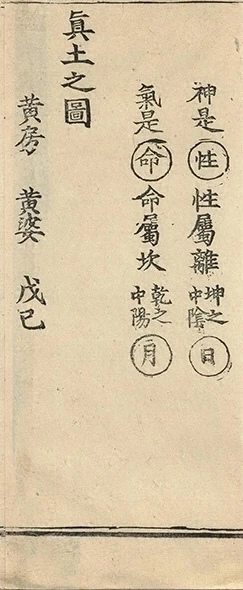 神是性性屬離坤之中陰日
氣是命命屬坎乾之中陽月
眞土之圖
黃房 黃婆 戊己